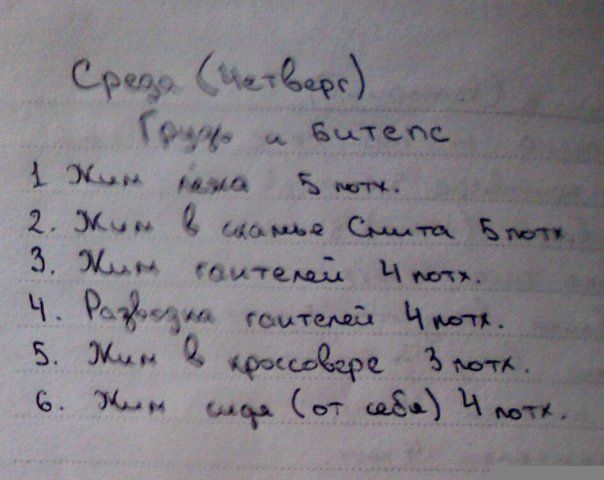 Среда (Четверг)
Грудь и Битепс
1 Жим лежа 5 потх.
2. Жим в скамье Смита 5 потх
3. Жим гантелей 4 потх.
4. Разводка гантелей 4 потх.
5. Жим в кроссовере 3 потх.
6. Жим сидя (от себя) 4 потх.